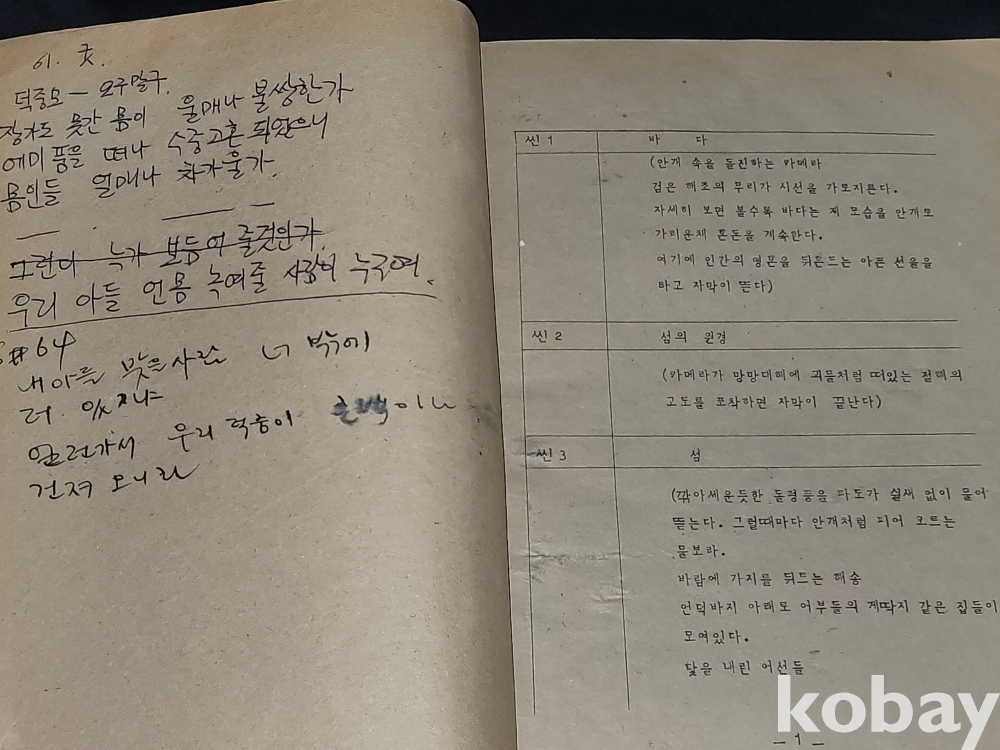 61.
덕중모 —
장가도 못간 몸이 얼매나 불쌍한가
에미품을 떠나 수중고혼 되얐으니
몸인들 얼매나 차가울가.
그런다 눅가 보듬어 줄것인가
우리 아들 언몸 녹여줄 사람이 누구여
#64
내아들 맞을 사람 너 밖에
더 있지냐
얼런가서 우리 덕중이
건져 오니라
씬 1 바 다
(안개 속을 돌진하는 카메라
검은 해조의 무리가 시선을 가로지른다.
자세히 보면 볼수록 바다는 제 모습을 안개로
가리운채 혼돈을 계속한다.
여기에 인간의 영혼을 뒤흔드는 아픈 선율을
타고 자막이 뜬다)
씬 2 섬의 원경
(카메라가 망망대해에 괴물처럼 떠있는 절해의
고도를 포착하면 자막이 끝난다)
씬 3 섬
(깎아세운듯한 돌령등을 파도가 쉴새 없이 물어
뜯는다. 그럴때마다 안개처럼 피어 오르는
물보라.
바람에 가지를 뒤트는 해송
언덕바지 아래로 어부들의 게딱지 같은 집들이
모여있다.
닻을 내린 어선들
— 1 —
kobay